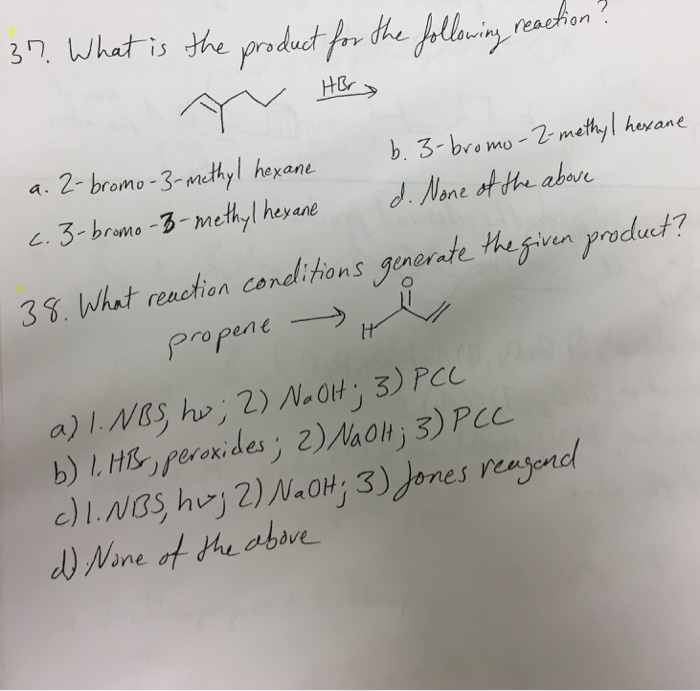 37. What is the product for the following reaction?
HBr
a. 2-bromo-3-methyl hexane
b. 3-bromo-2-methyl hexane
c. 3-bromo-3-methyl hexane
d. None of the above
38. What reaction conditions generate the given product?
propene → O H
a) 1. NBS, hν; 2) NaOH; 3) PCC
b) 1. HBr, peroxides; 2) NaOH; 3) PCC
c) 1. NBS, hν; 2) NaOH; 3) Jones reagend
d) None of the above